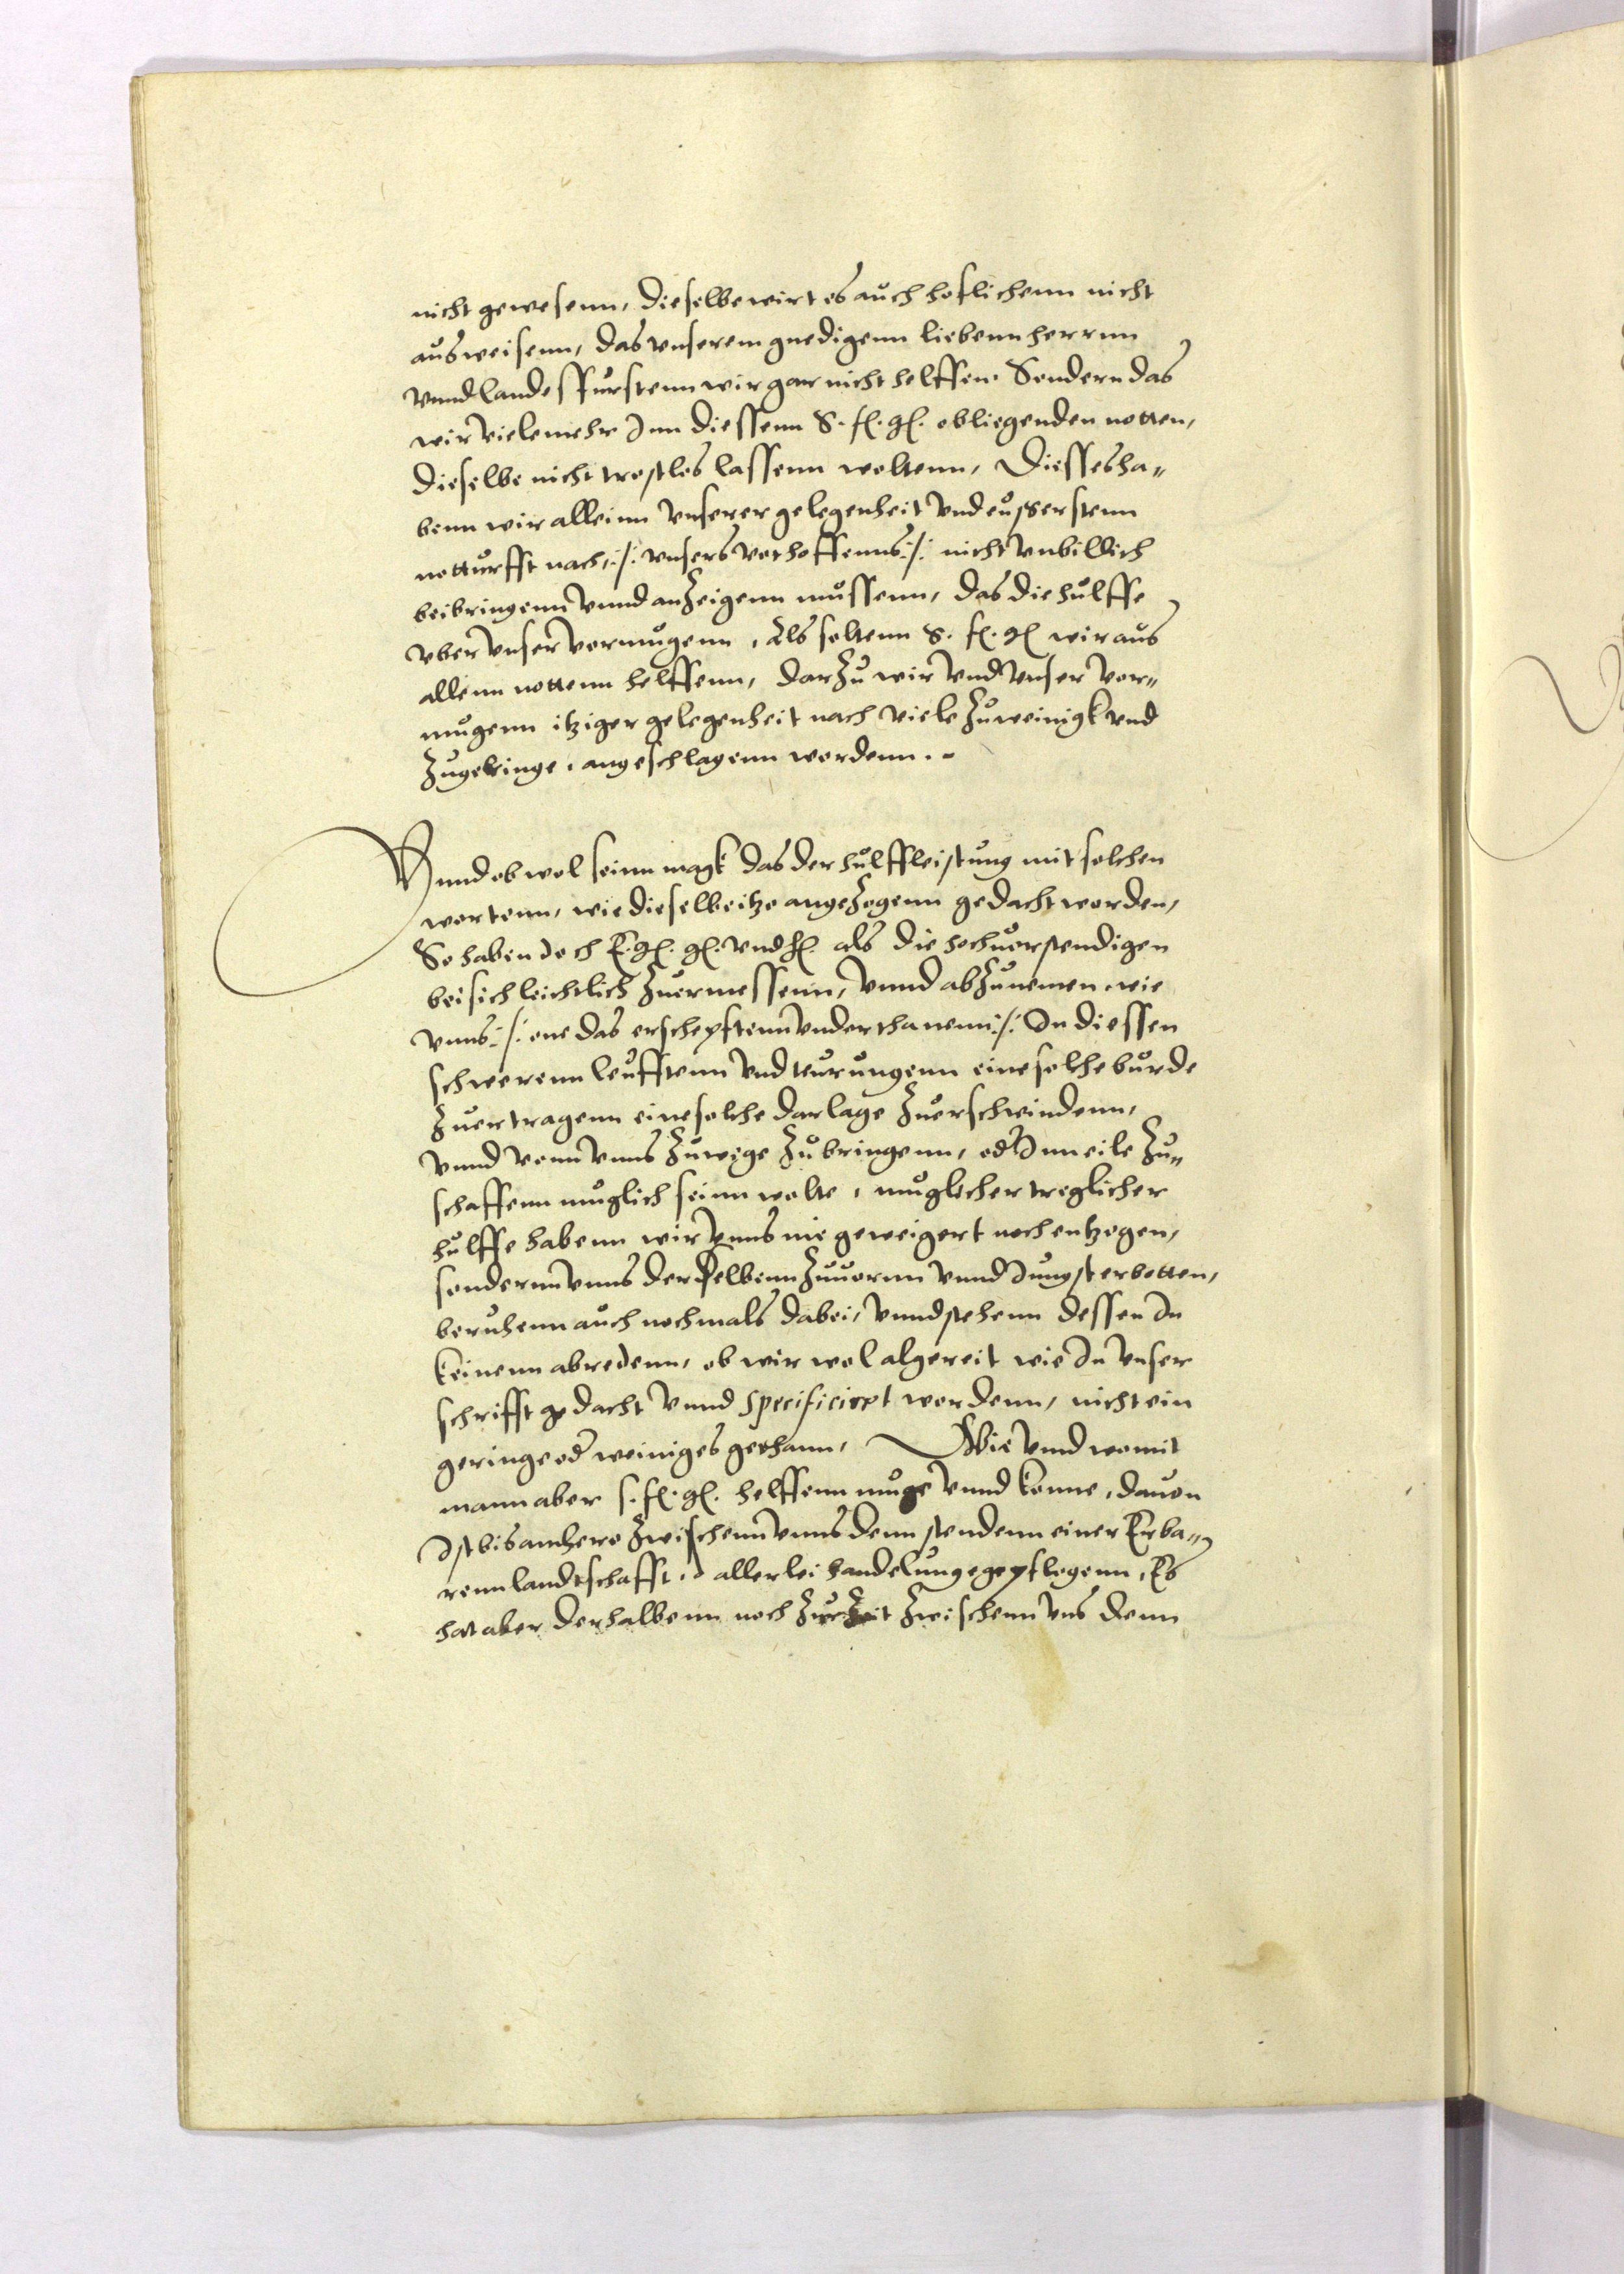 nicht gewesenn, dieselbe wirt es auch hoflichenn nicht
ausweisenn, das vnserem gnedigenn liebenn herrnn
vnnd landesfurstenn wir gar nicht helffen. Sondern das
wir vielemehr Inn diessenn S. f. g. obliegenden notten,
dieselbe nicht trostlos lassenn woltenn, Diesses ha„
benn wir alleinn vnserer gelegenheit vnd eusserstenn
notturfft nach, :/: vnsers verhoffenns :/: nicht vnbillich
beibringenn vnnd anzeigenn mussenn, das die hulffe
vber vnser vermugenn, Als soltenn S. f. g. wir aus
allenn nottenn helffenn, darzu wir vnd vnser ver„
mugenn itziger gelegenheit nach viele zu weinigk vnd
zugeringe, angeschlagenn werdenn.
Vnnd ob wol seinn magk das der hulffleistung mit solchen
wortenn, wie dieselb itzo angezogenn gedacht worden,
So haben doch E. g. g. vnd h. als die hochuerstendigen
bei sich leichtlich zuermessenn, vnnd abzunemen, wie
vnns :/: one das erschepftenn vnderthanenn :/: In diessen
schwerenn leufftenn vnd teurungenn eine solche burde
zuertragenn eine solche darlage zuerschwindenn,
vnnd vonn vnns zuwege zubringenn, oder Inn eile zu„
schaffenn muglich seinn wolte, muglicher treglicher
hulffe habenn wir vnns nie geweigert noch entzogen,
sondernn vnns derselbenn zuuornn vnnd Jungst erbotten,
beruhenn auch nochmals dabei, vnnd stehenn dessen In
keinenn abredenn, ob wir wol algereit wie In vnser
schrifft gedacht vnnd specificiret wordenn, nicht ein
geringe oder weiniges gethann, Wie vnnd womit
mann aber s. f. g. helffenn muge vnnd konne, dauon
Ist bis anhero zwischenn vnns denn stendenn einer Erba„
renn landtschafft, allerlei handelunge gepflogenn, Es
hat aber derhalbenn noch zur Zeit zwischenn vns denn